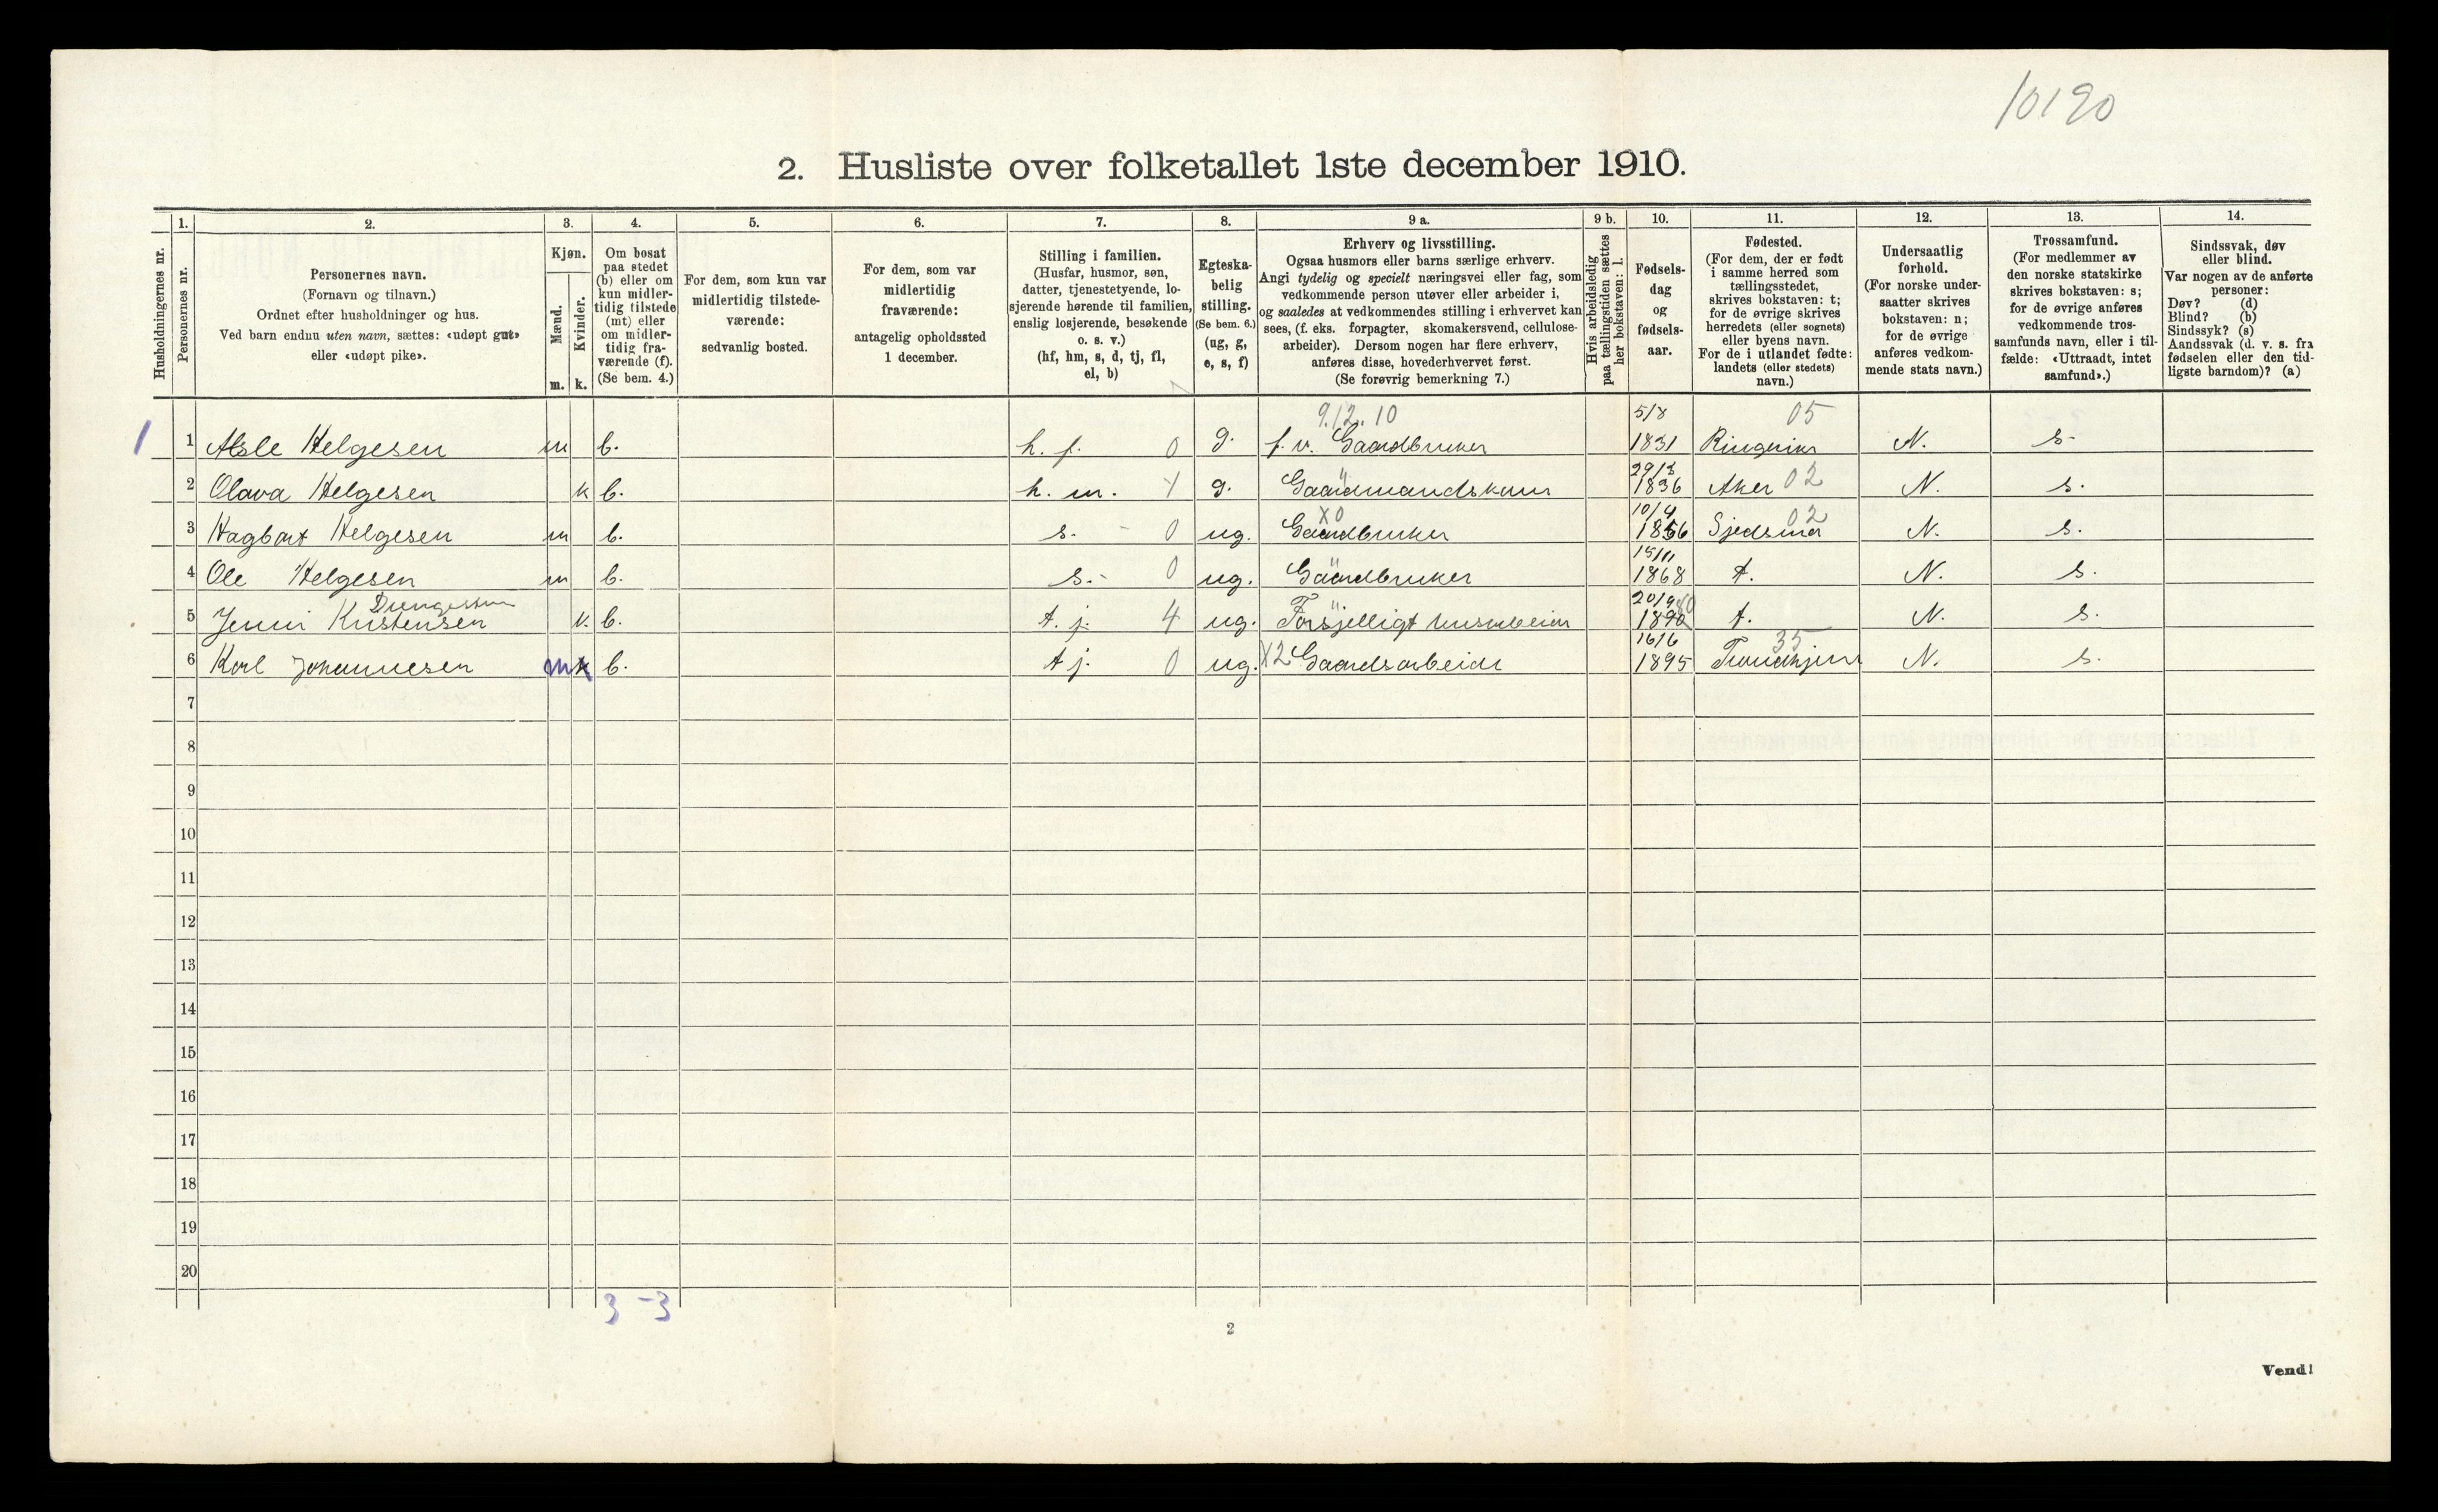 10190
2. Husliste over folketallet 1ste december 1910.
Husholdningernes nr.
1.
Personernes nr.
2.
Personernes navn.
(Fornavn og tilnavn.)
Ordnet efter husholdninger og hus.
Ved barn endnu uten navn, sættes: «udøpt gut»
eller «udøpt pike».
3.
Kjøn.
Mænd.
Kvinder.
m. k.
4.
Om bosat
paa stedet
(b) eller om
kun midler-
tidig tilstede
(mt) eller
om midler-
tidig fra-
værende (f).
(Se bem. 4.)
5.
For dem, som kun var
midlertidig tilstede-
værende:
sedvanlig bosted.
6.
For dem, som var
midlertidig
fraværende:
antagelig opholdssted
1 december.
7.
Stilling i familien.
(Husfar, husmor, søn,
datter, tjenestetyende, lo-
sjerende hørende til familien,
enslig losjerende, besøkende
o. s. v.)
(hf, hm, s, d, tj, fl,
el, b)
8.
Egteska-
belig
stilling.
(Se bem. 6.)
(ug, g,
e, s, f)
9 a.
Erhverv og livsstilling.
Ogsaa husmors eller barns særlige erhverv.
Angi tydelig og specielt næringsvei eller fag, som
vedkommende person utøver eller arbeider i,
og saaledes at vedkommendes stilling i erhvervet kan
sees, (f. eks. forpagter, skomakersvend, cellulose-
arbeider). Dersom nogen har flere erhverv,
anføres disse, hovederhvervet først.
(Se forøvrig bemerkning 7.)
9 b.
Hvis arbeidsledig
paa tællingstiden sættes
her bokstaven: l.
10.
Fødsels-
dag
og
fødsels-
aar.
11.
Fødested.
(For dem, der er født
i samme herred som
tællingsstedet,
skrives bokstaven: t;
for de øvrige skrives
herredets (eller sognets)
eller byens navn.
For de i utlandet fødte:
landets (eller stedets)
navn.)
12.
Undersaatlig
forhold.
(For norske under-
saatter skrives
bokstaven: n;
for de øvrige
anføres vedkom-
mende stats navn.)
13.
Trossamfund.
(For medlemmer av
den norske statskirke
skrives bokstaven: s;
for de øvrige anføres
vedkommende tros-
samfunds navn, eller i til-
fælde: «Uttraadt, intet
samfund».)
14.
Sindssvak, døv
eller blind.
Var nogen av de anførte
personer:
Døv? (d)
Blind? (b)
Sindssyk? (s)
Aandssvak (d. v. s. fra
fødselen eller den tid-
ligste barndom)? (a)
9.12.10 5/8 05
1 1 Asle Helgesen m b. h. f. 0 g. f. v. Gaardbruker 1831 Ringerike N. s.
29/3
2 Olava Helgesen k b. h. m. 1 g. Gaardmandskone 1836 Aker 02 N. s.
X0 10/4 02
3 Hagbart Helgesen m b. s. - 0 ug. Gaardbruker 1866 Sjedsmo N. s.
15/11
4 Ole Helgesen m b. s. - 0 ug. Gaardbruker 1868 t. N. s.
20/9
5 Jenni Kristensen k. b. t. j. 4 ug. Forsjelligt husarbeide t. N. s.
16/6 35
6 Karl Johannesen m k b. t j. 0 ug. X2 Gaardsarbeide 1895 Trondhjem N. s.
7
8
9
10
11
12
13
14
15
16
17
18
19
20
3 - 3
2
Vend!